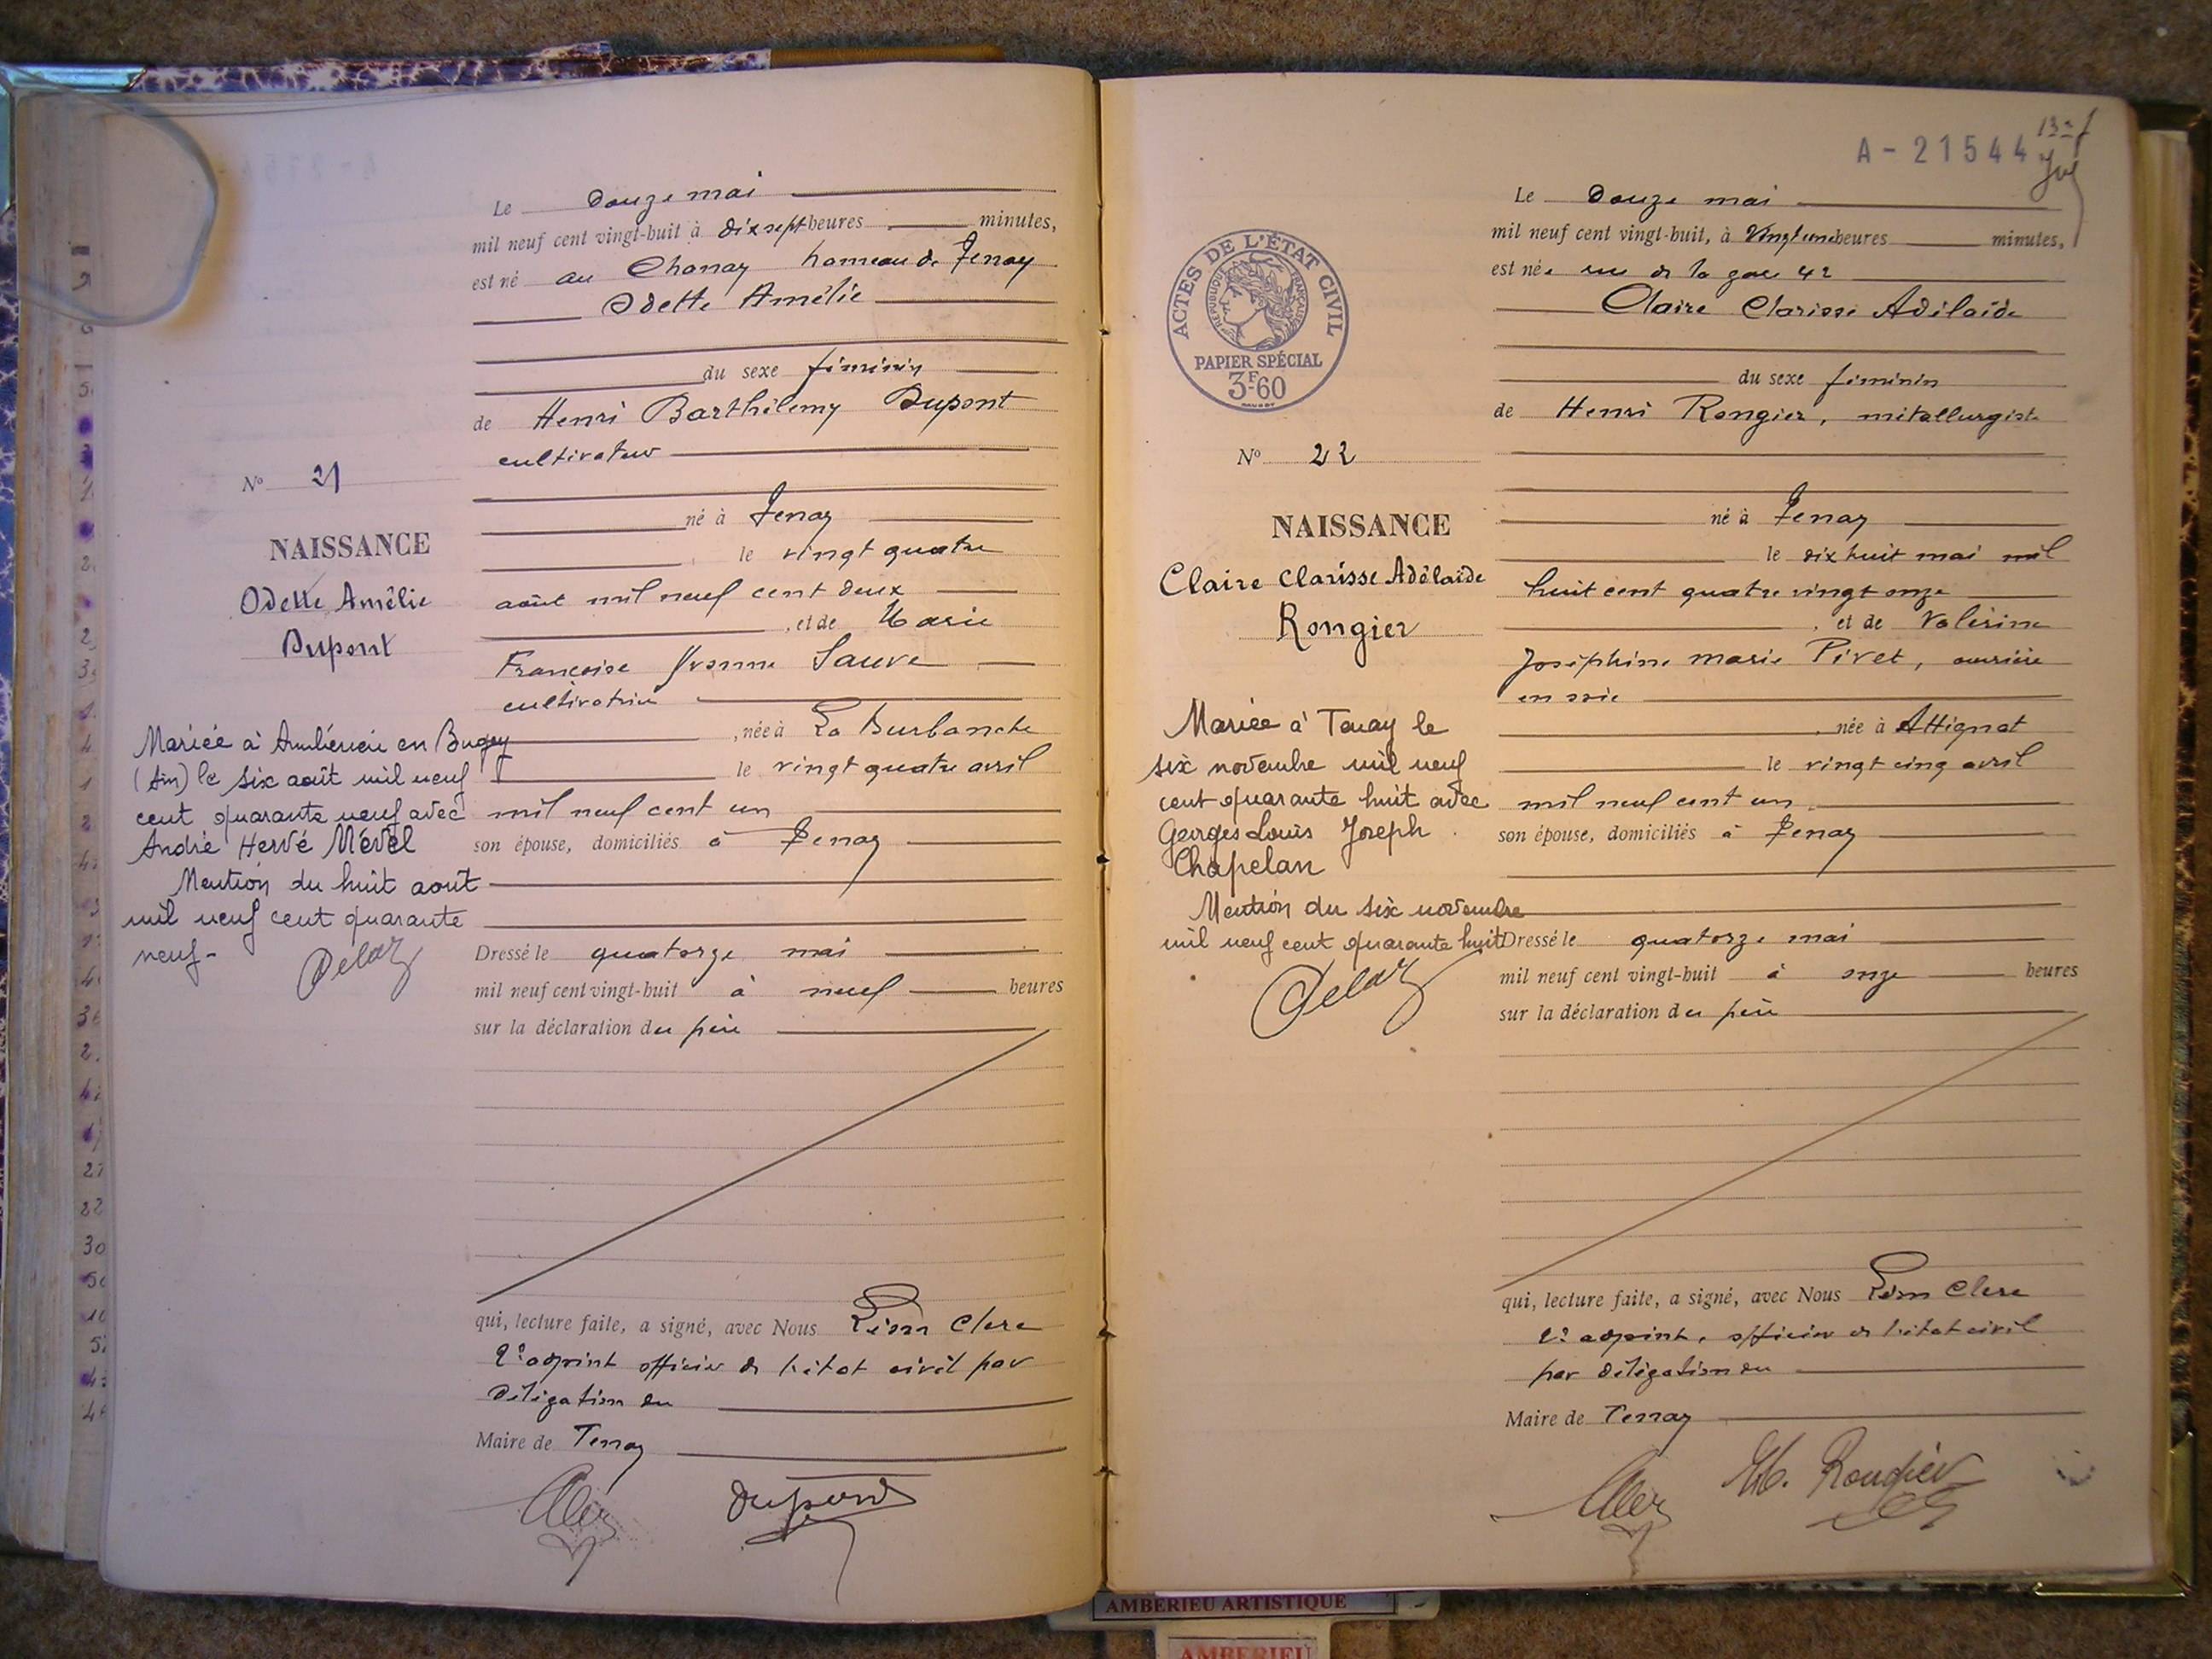 Le Douze mai
mil neuf cent vingt-huit à dix sept heures minutes,
est né au Chanay hameau de Tenay
Odette Amélie
du sexe féminin
de Henri Barthélemy Dupont
cultivateur
né à Tenay
le vingt quatre
août mil neuf cent deux
, et de Marie
Françoise Yvonne Sauve
cultivatrice
, née à La Burbanche
le vingt quatre avril
mil neuf cent un
son épouse, domiciliés à Tenay
Dressé le quatorze mai
mil neuf cent vingt-huit à neuf heures
sur la déclaration du père
qui, lecture faite, a signé, avec Nous Léon Clerc
2e adjoint officier de l'état civil par
délégation du
Maire de Tenay
Dupont
No 21
NAISSANCE
Odette Amélie
Dupont
Mariée à Ambérieu en Bugey
(Ain) le six août mil neuf
cent quarante neuf avec
André Hervé Mével
Mention du huit août
mil neuf cent quarante
neuf-
A-21544
Le Douze mai
mil neuf cent vingt-huit, à vingt une heures minutes,
est née rue de la gare 42
Claire Clarisse Adélaïde
du sexe féminin
de Henri Rongier, métallurgiste
né à Tenay
le dix huit mai mil
huit cent quatre vingt onze
, et de Valérine
Joséphine marie Pivet, ouvrière
en soie
, née à Attignat
le vingt cinq avril
mil neuf cent un
son épouse, domiciliés à Tenay
Dressé le quatorze mai
mil neuf cent vingt-huit à onze heures
sur la déclaration du père
qui, lecture faite, a signé, avec Nous Léon Clerc
2e adjoint, officier de l'état civil
par délégation du
Maire de Tenay
H. Rongier
ACTES DE L'ÉTAT CIVIL
RÉPUBLIQUE FRANÇAISE
PAPIER SPÉCIAL
3F60
No 22
NAISSANCE
Claire Clarisse Adélaïde
Rongier
Mariée à Tenay le
six novembre mil neuf
cent quarante huit avec
Georges Louis Joseph
Chapelan
Mention du six novembre
mil neuf cent quarante huit
AMBERIEU ARTISTIQUE
AMBERIEU